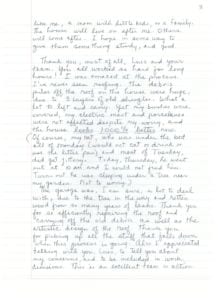 like me, a mom with kids, or a family.
The house will live on after me. Others
will come after. I hope in some way to
give them something sturdy, and good.
Thank you, most of all, Luis and your
team. You all worked so hard for long
hours! I was amazed at the process.
I've never seen roofing. The debris
piles off the roof on this house were huge,
due to 3 layers of old shingles. What a
lot to lift and carry. Yet my bushes
survived, my electric meter and porcelains
were not affected despite my worry, and
the house looks 1000% better now.
Of course, my cat, who was under the bed
all of Monday (would not eat or drink or
use the litter pan) and most of Tuesday,
did get jittery. Today, Thursday, he went
out at and I could not find him.
Turns out he was sleeping under a tree near
my garden. Not to worry!
The garage was, I am sure, a lot to deal
with, due to the tree in the way and rotten
wood from so many years of leaks. Thank you
for so efficiently repairing the roof and
carrying off the old debris as well as the
artistic design of the roof. Thank you
for picking up all the stuff that falls down
when this process is going. Also I appreciated
talking with you Luis to tell you about
my concerns, and to be included in work
decisions. This is an excellent team in action.